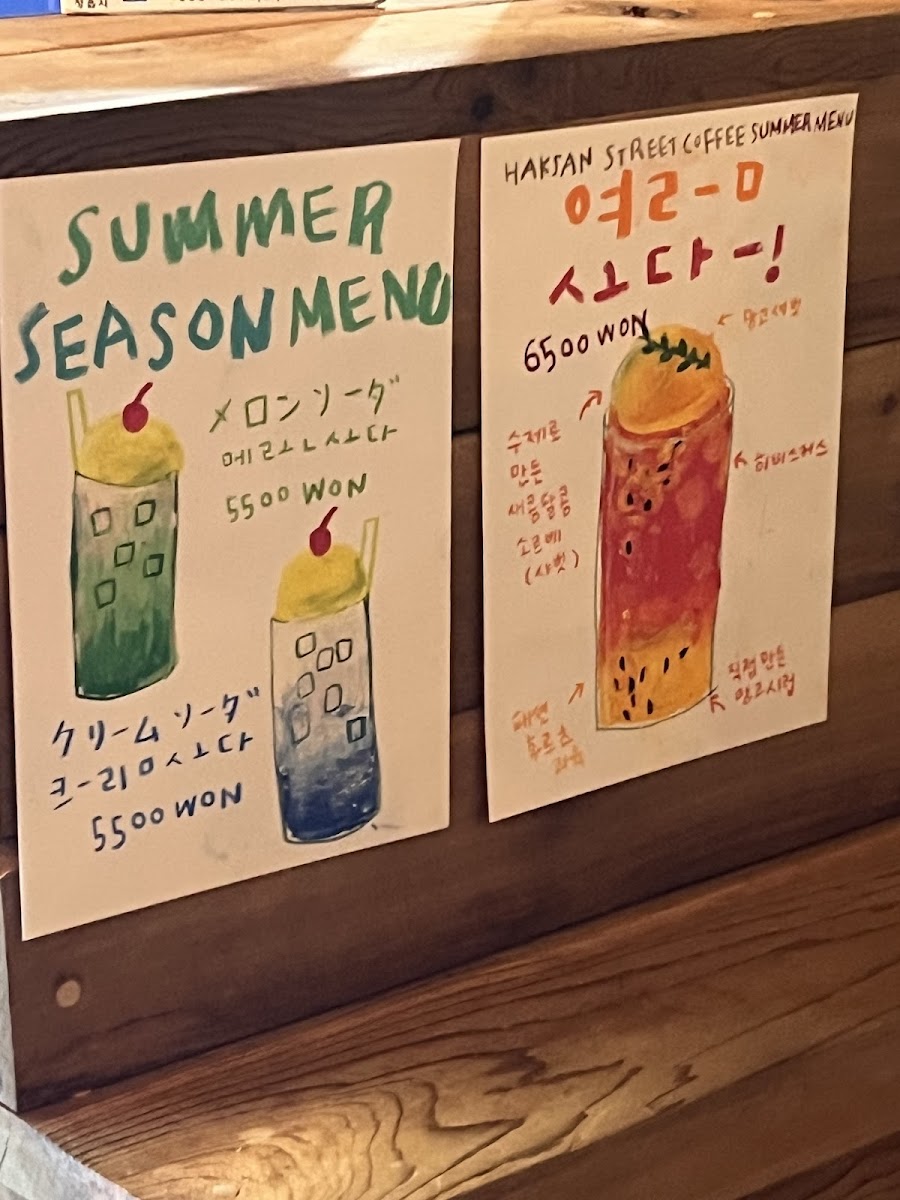 SUMMER
SEASON MENU
メロンソーダ
메론소다
5500 WON
クリームソーダ
크-림소다
5500 WON
HAKSAN STREET COFFEE SUMMER MENU
여름
소다-!
6500 WON
망고
수제로
만든
새콤달콤
소르베
(샤벳)
히비스커스
직접 만든
망고시럽
패션
후르츠
과육